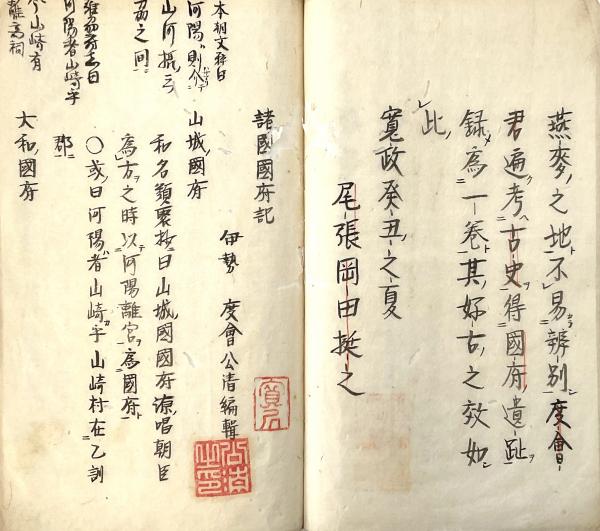 燕麥之地不易辨別度會
君遍考古史得國府遺趾
録為一卷其好古之效如
此
寬政癸丑之夏
尾張岡田挺之
諸國國府記
伊勢 度會公清編輯
山城國府
和名類聚抄曰山城國國府源唱朝臣
為方之時以河陽離宮為國府
〇或曰河陽者山崎乎山崎村在乙訓
郡
大和國府
本朝文粹曰
河陽則介
山河攝三
之間
河陽者山崎乎
山崎有
離宮祠
公清
之印